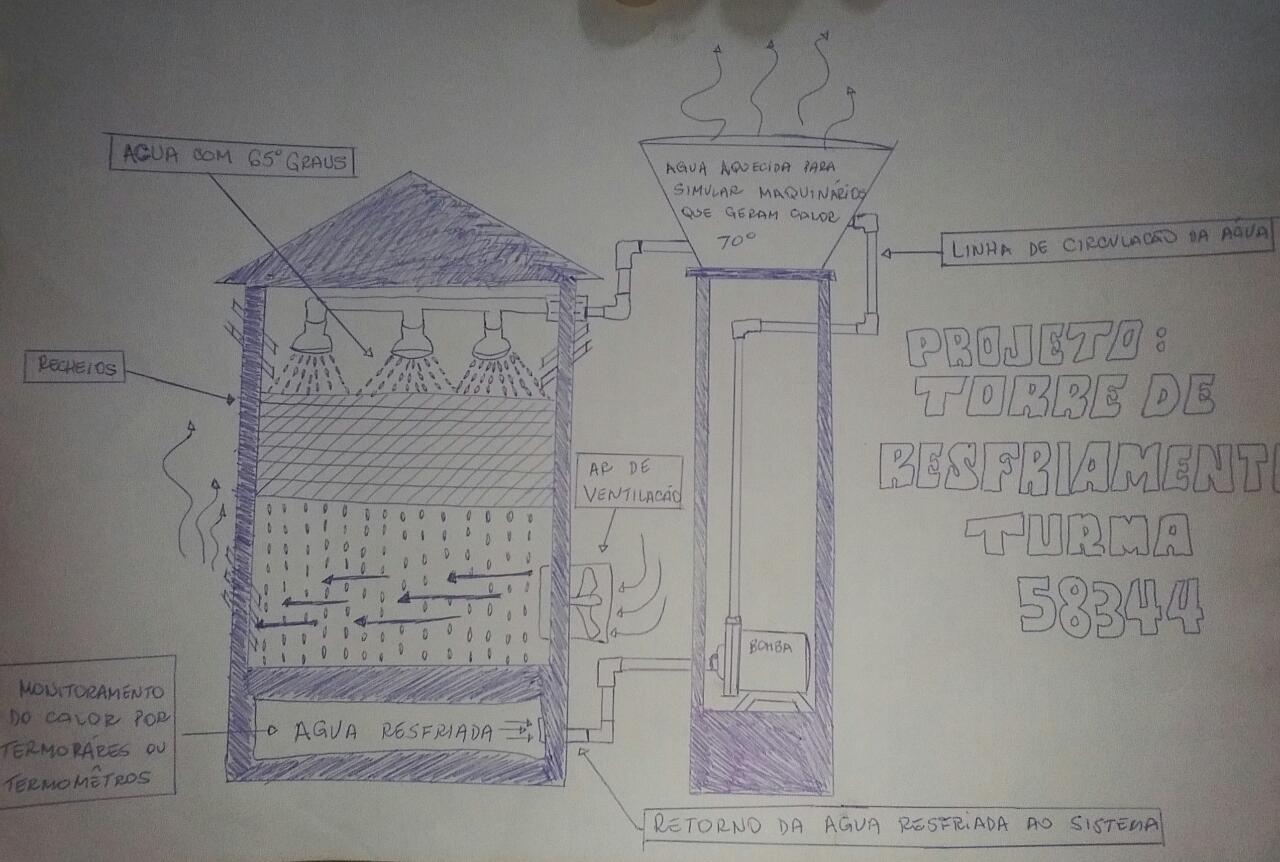 AGUA COM 65° GRAUS
AGUA AQUECIDA PARA
SIMULAR MAQUINÁRIOS
QUE GERAM CALOR
70°
LINHA DE CIRCULAÇÃO DA AGUA
RECHEIOS
PROJETO:
TORRE DE
RESFRIAMENTO
TURMA
58344
AR DE
VENTILAÇÃO
BOMBA
MONITORAMENTO
DO CALOR POR
TERMORÁRES OU
TERMOMÊTROS
AGUA RESFRIADA
RETORNO DA AGUA RESFRIADA AO SISTEMA